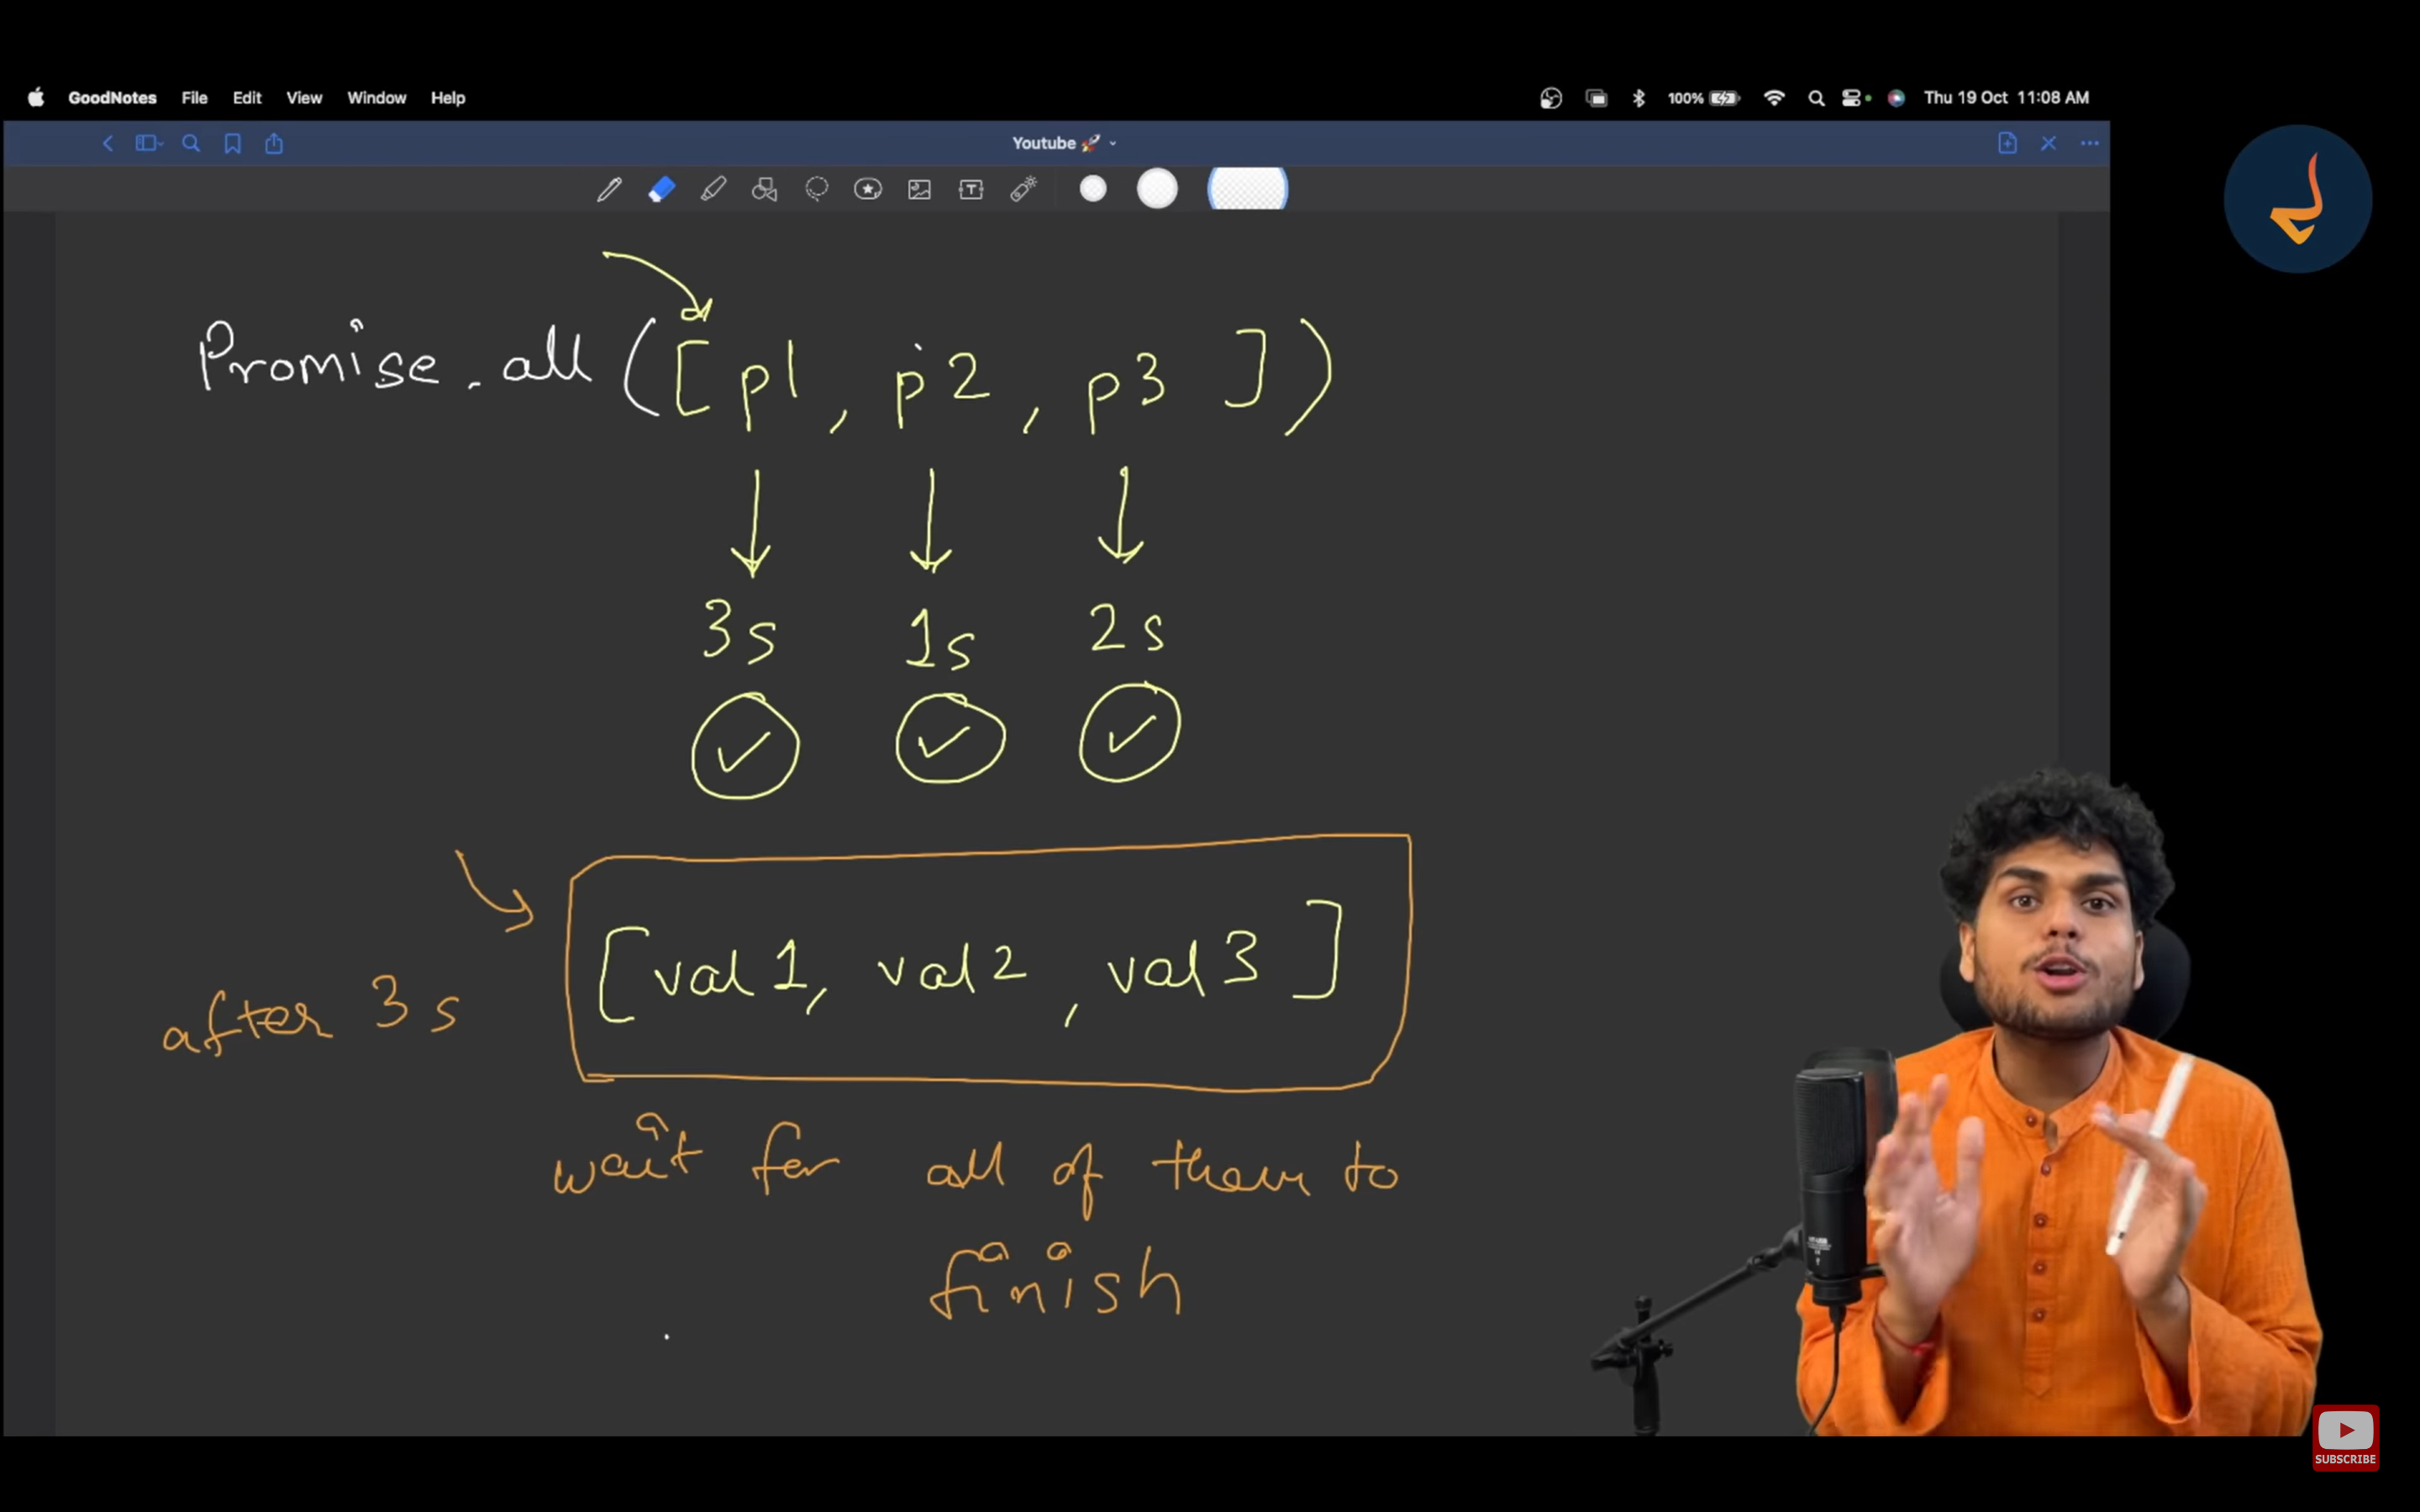 GoodNotes File Edit View Window Help 100% Thu 19 Oct 11:08 AM
Youtube 🚀
Promise.all([p1, p2, p3])
3s 1s 2s
[val1, val2, val3]
after 3s
wait for all of them to
finish
SUBSCRIBE